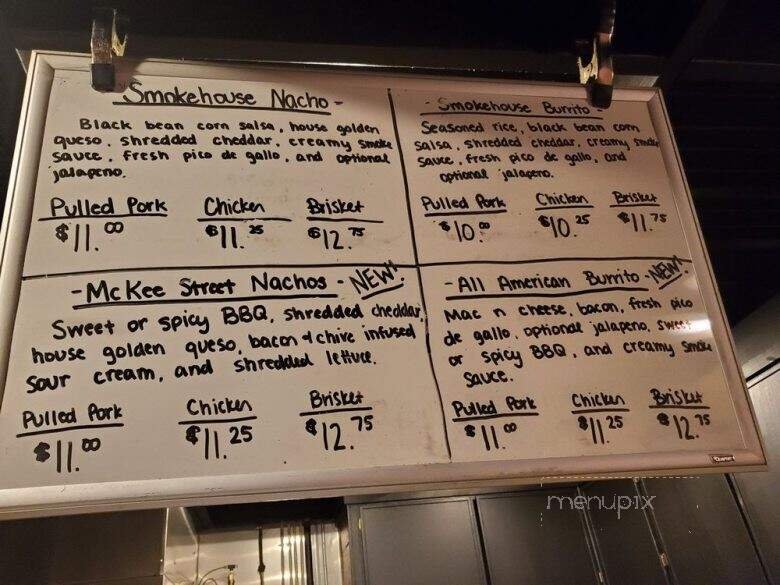 Smokehouse Nacho -
Black bean corn salsa, house golden
queso, shredded cheddar, creamy smoke
sauce, fresh pico de gallo, and optional
jalapeno.
Pulled Pork Chicken Brisket
$11.00 $11.25 $12.75
- Smokehouse Burrito -
Seasoned rice, black bean corn
salsa, shredded cheddar, creamy smoke
sauce, fresh pico de gallo, and
optional jalapeno.
Pulled Pork Chicken Brisket
$10.00 $10.25 $11.75
- McKee Street Nachos - NEW!
Sweet or spicy BBQ, shredded cheddar,
house golden queso, bacon & chive infused
sour cream, and shredded lettuce.
Pulled Pork Chicken Brisket
$11.00 $11.25 $12.75
- All American Burrito - NEW!
Mac n cheese, bacon, fresh pico
de gallo, optional jalapeno, sweet
or spicy BBQ, and creamy smoke
sauce.
Pulled Pork Chicken Brisket
$11.00 $11.25 $12.75
Quartet
menupix